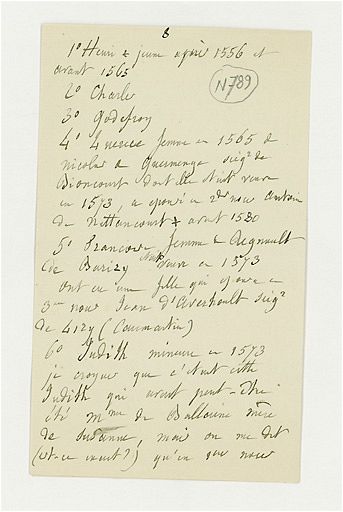 8
1º Henri + jeune après 1556 et
avant 1565
Nº789
2º Charle
3º Godefroy
4º femme en 1565 de
Nicolas de seigr de
Bioncourt dont elle était veuve
en 1573, a épousé en 2de noce Antoine
de Nettancourt + avant 1580
5º Françoise femme de Regnault
de Barizy veuve en 1573
ont eu une fille qui épouse en
3me noce Jean d'Averhoult seigr
de (Caumartin)
6º Judith mineure en 1573
je croyais que c'était cette
Judith qui avait peut-être
été mme de Ballaine mère
de Suzanne, mais on me dit
(est-ce exact?) qu'en noce